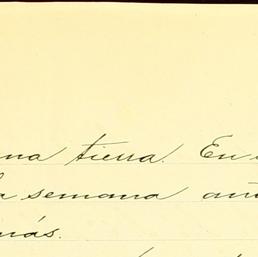 na tierra. En
a semana
más.